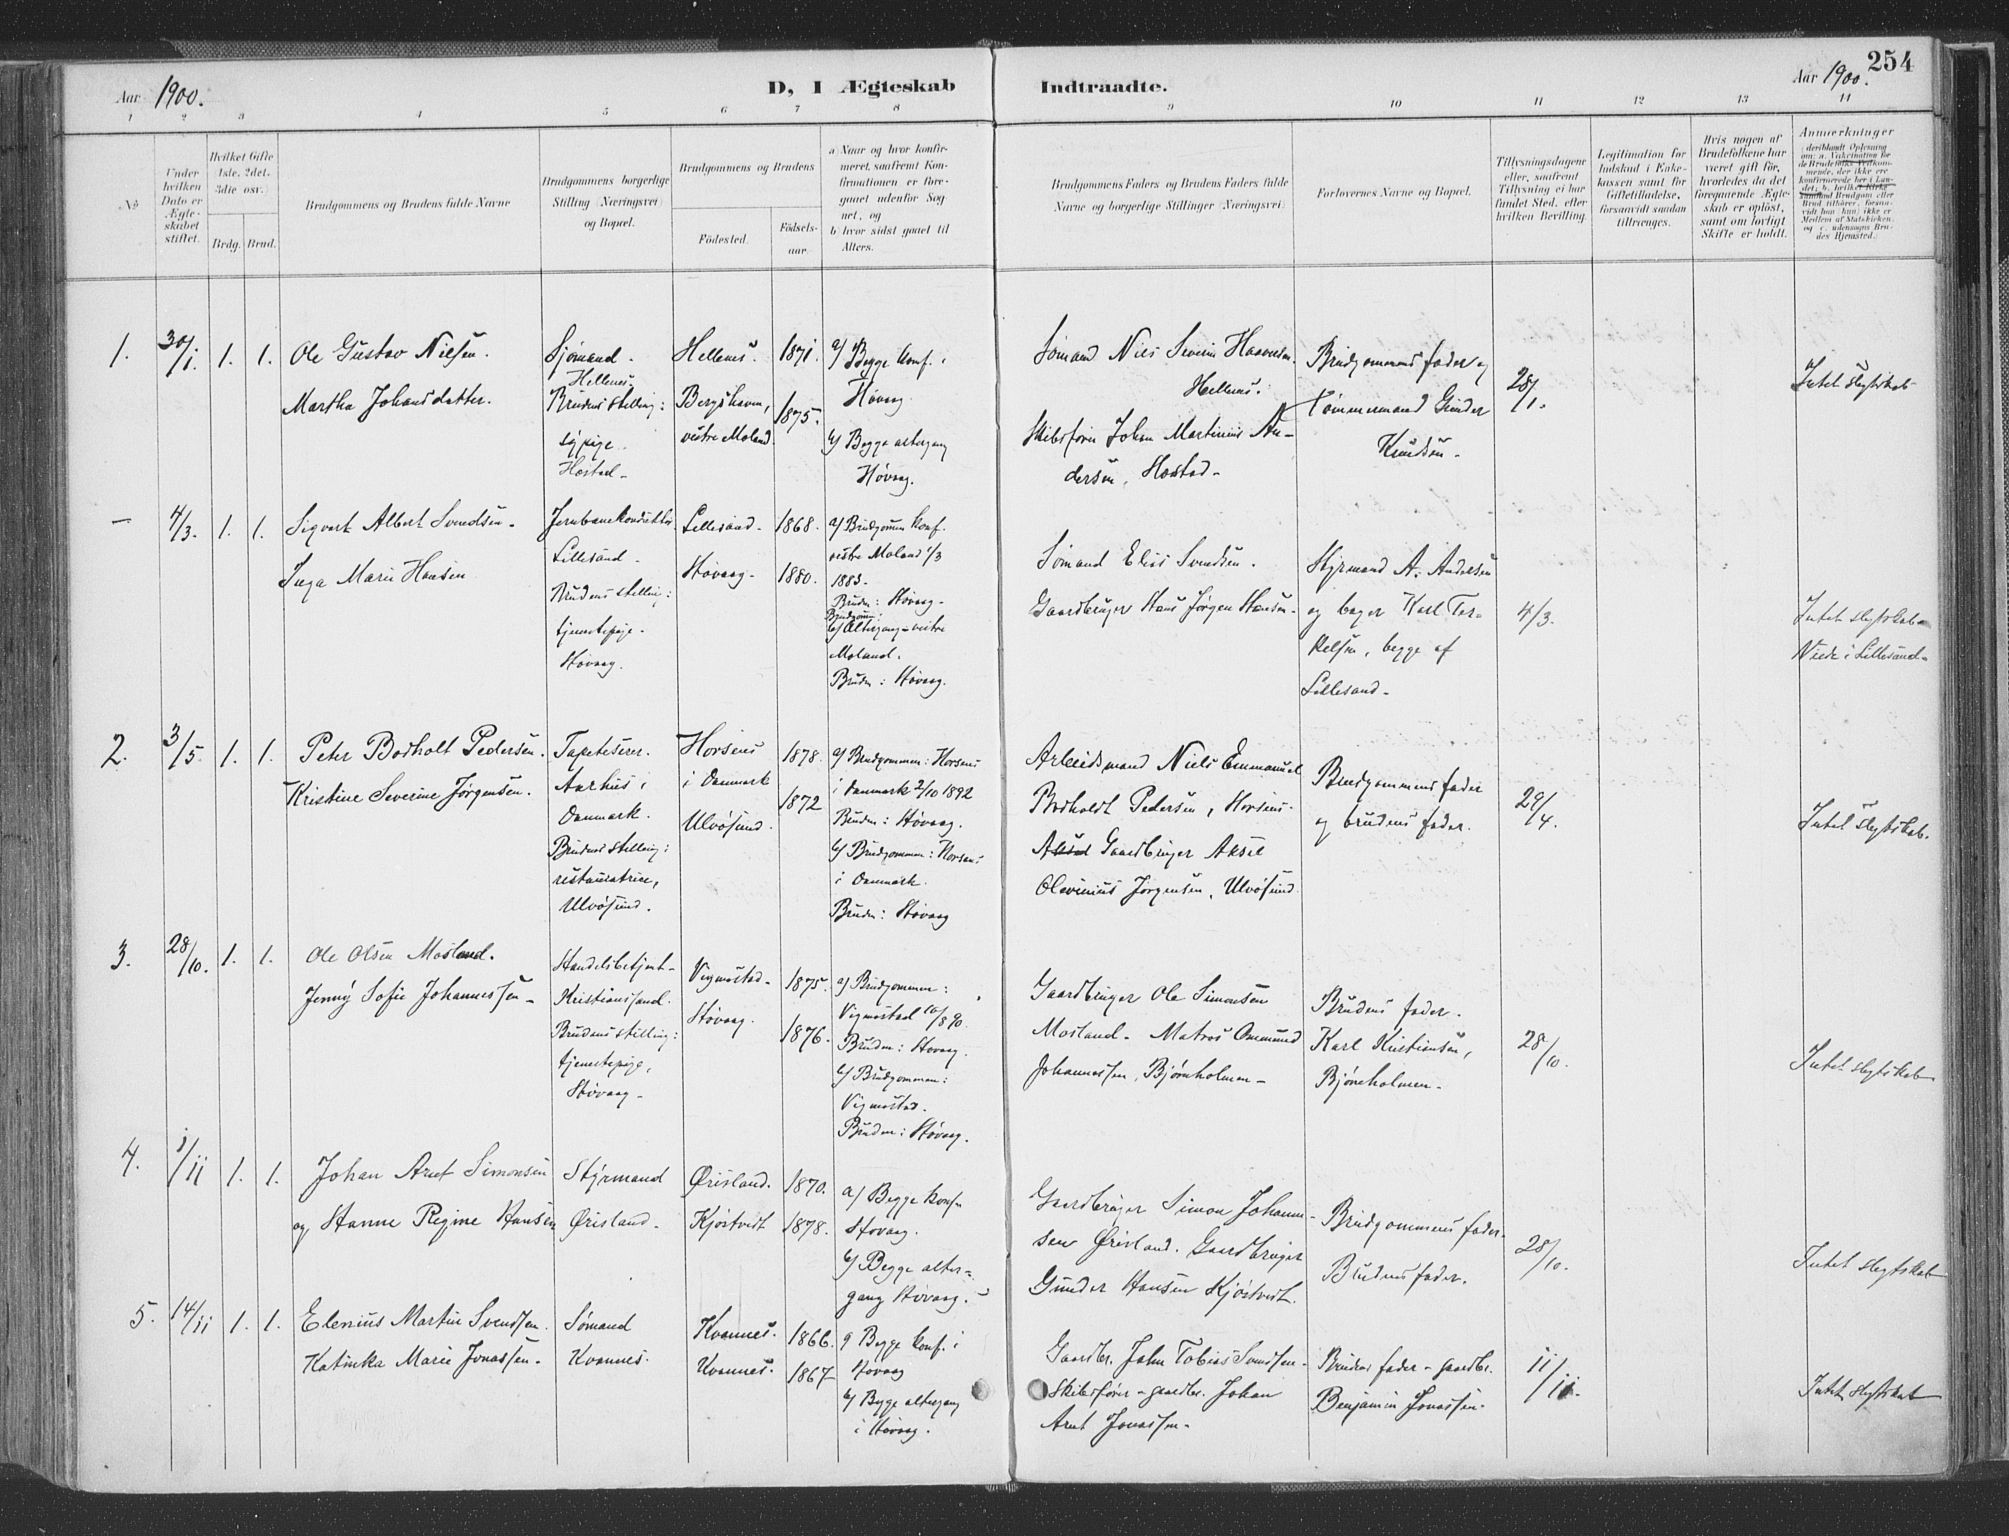 254
Aar 1900.
D, I Ægteskab Indtraadte.
Aar 1900.
1 2 3 4 5 6 7 8 9 10 11 12 13 14
No
Under hvilken Dato er Ægteskabet stiftet.
Hvilket Gifte (1ste, 2det, 3die osv.)
Brdg. Brud.
Brudgommens og Brudens fulde Navne
Brudgommens borgerlige Stilling (Næringsvei) og Bopæl.
Brudgommens og Brudens
Födested. Födselsaar.
a Naar og hvor konfirmeret, saafremt Konfirmationen er foregaaet udenfor Sognet, og
b hvor sidst gaaet til Alters.
Brudgommens Faders og Brudens Faders fulde Navne og borgerlige Stillinger (Næringsvei)
Forlovernes Navne og Bopæl.
Tillysningsdagene eller, saafremt Tillysning ei har fundet Sted, efter hvilken Bevilling.
Legitimation for Indskud i Enkekassen samt for Giftetilladelse, forsaavidt saadan tiltrænges.
Hvis nogen af Brudefolkene har været gift før, hvorledes da det foregaaende Ægteskab er oplöst, samt om lovligt Skifte er holdt.
Anmerkninger
1. 30/1 1. 1.
Ole Gustav Nielsen.
Martha Johansdatter.
Sjømand.
Hellenes.
Brudens stilling:
sypige.
Hæstad.
Hellenes. 1871.
Bergshavn, vestre Moland. 1875.
a/ Begge konf. i
Høvaag.
b/ Begge altergang
Høvaag.
Sømand Niels Severin
Hellenes.
Skibsfører Johan Martinius Andersen, Hæstad.
Brudgommens fader og
Tømmermand Gunder
Knudsen.
28/1.
Intet slegtskab
- 4/3. 1. 1.
Sigvart Albert Svendsen.
Inga Marie Hansen
Jernbanekonduktør.
Lillesand.
Brudens stilling:
tjenestepige.
Høvaag.
Lillesand. 1868.
Høvaag. 1880.
a/ Brudgommen konf.
vestre Moland 1/3
1883.
Bruden: Høvaag.
Brudgom:
b/ Altergang - vestre
Moland.
Bruden: Høvaag.
Sømand Elias Svendsen.
Gaardbruger Hans Jørgen Hansen.
Styrmand A. Andersen
og bager Karl Terkelsen, begge af
Lillesand.
4/3.
Intet slegtskab.
Viede i Lillesand.
2. 3/5. 1. 1.
Peter Bodholt Pedersen.
Kristine Severine Jørgensen.
Tapetserer.
Aarhus i
Danmark.
Brudens stilling:
restauratrice,
Ulvøsund.
Horsens
i Danmark 1878.
Ulvøsund. 1872
a/ Brudgommen: Horsens
i Danmark 2/10 1892
Bruden: Høvaag.
b/ Brudgommen: Horsens
i Danmark.
Bruden: Høvaag
Arbeidsmand Niels Emmanuel
Bodholdt Pedersen, Horsens.
Gaardbruger Aksel
Olevinius Jørgensen, Ulvøsund.
Brudgommens fader
og brudens fader.
29/4.
Intet slegtskab.
3. 28/10. 1. 1.
Ole Olsen Mosland.
Jenny Sofie Johannessen
Handelsbetjent
Kristianssand.
Brudens stilling:
tjenestepige,
Høvaag.
Vigmostad. 1875.
Høvaag. 1876.
a/ Brudgommen:
Vigmostad
Bruden: Høvaag.
b/ Brudgommen:
Vigmostad.
Bruden: Høvaag.
Gaardbruger Ole Simonsen
Mosland. Matros Ommund
Johannessen, Bjørnholmen
Brudens fader.
Karl Kristiansen,
Bjørnholmen.
28/10.
Intet slegtskab
4. 1/11 1. 1.
Johan Arnt Simonsen
og Hanne Regine Hansen
Styrmand
Ørisland.
Ørisland. 1870.
Kjøstvedt 1878.
a/ Begge konf.
Høvaag.
b/ Begge altergang Høvaag.
Gaardbruger Simon Johannsen Ørisland. Gaardbruger
Gunder Hansen Kjøstvedt.
Brudgommens fader.
Brudens fader.
28/10.
Intet slegtskab
5. 14/11 1. 1.
Elenius Martin Svendsen.
Katinka Marie Jonassen.
Sømand
Kvannes.
Kvannes. 1866.
Kvannes. 1867
a Begge konf. i
Høvaag
b/ Begge altergang
i Høvaag.
Gaardbr. John Tobias Svendsen.
Skibsfører - gaardbr. Johan
Arnt Jonassen.
Brudens fader - gaardbr.
Benjamin Jonassen.
11/11.
Intet slegtskab